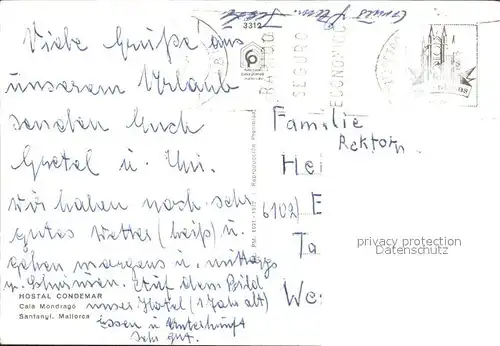 3312
RAPIDO
SEGURO
ECONOMICO
Viele Grüße aus
unserem Urlaub
senden Euch
Gretel u. Uwi.
Wir haben noch sehr
gutes Wetter (heiß) u.
gehen morgens u. mittags
z. Schwimmen. Auf dem Bild
unser Hotel (1 Jahr alt)
Essen u. Unterkunft
sehr gut.
HOSTAL CONDEMAR
Cala Mondragó
Santanyi. Mallorca
Familie
Rektor
He
6102) E
Ta
We
privacy protection
Datenschutz